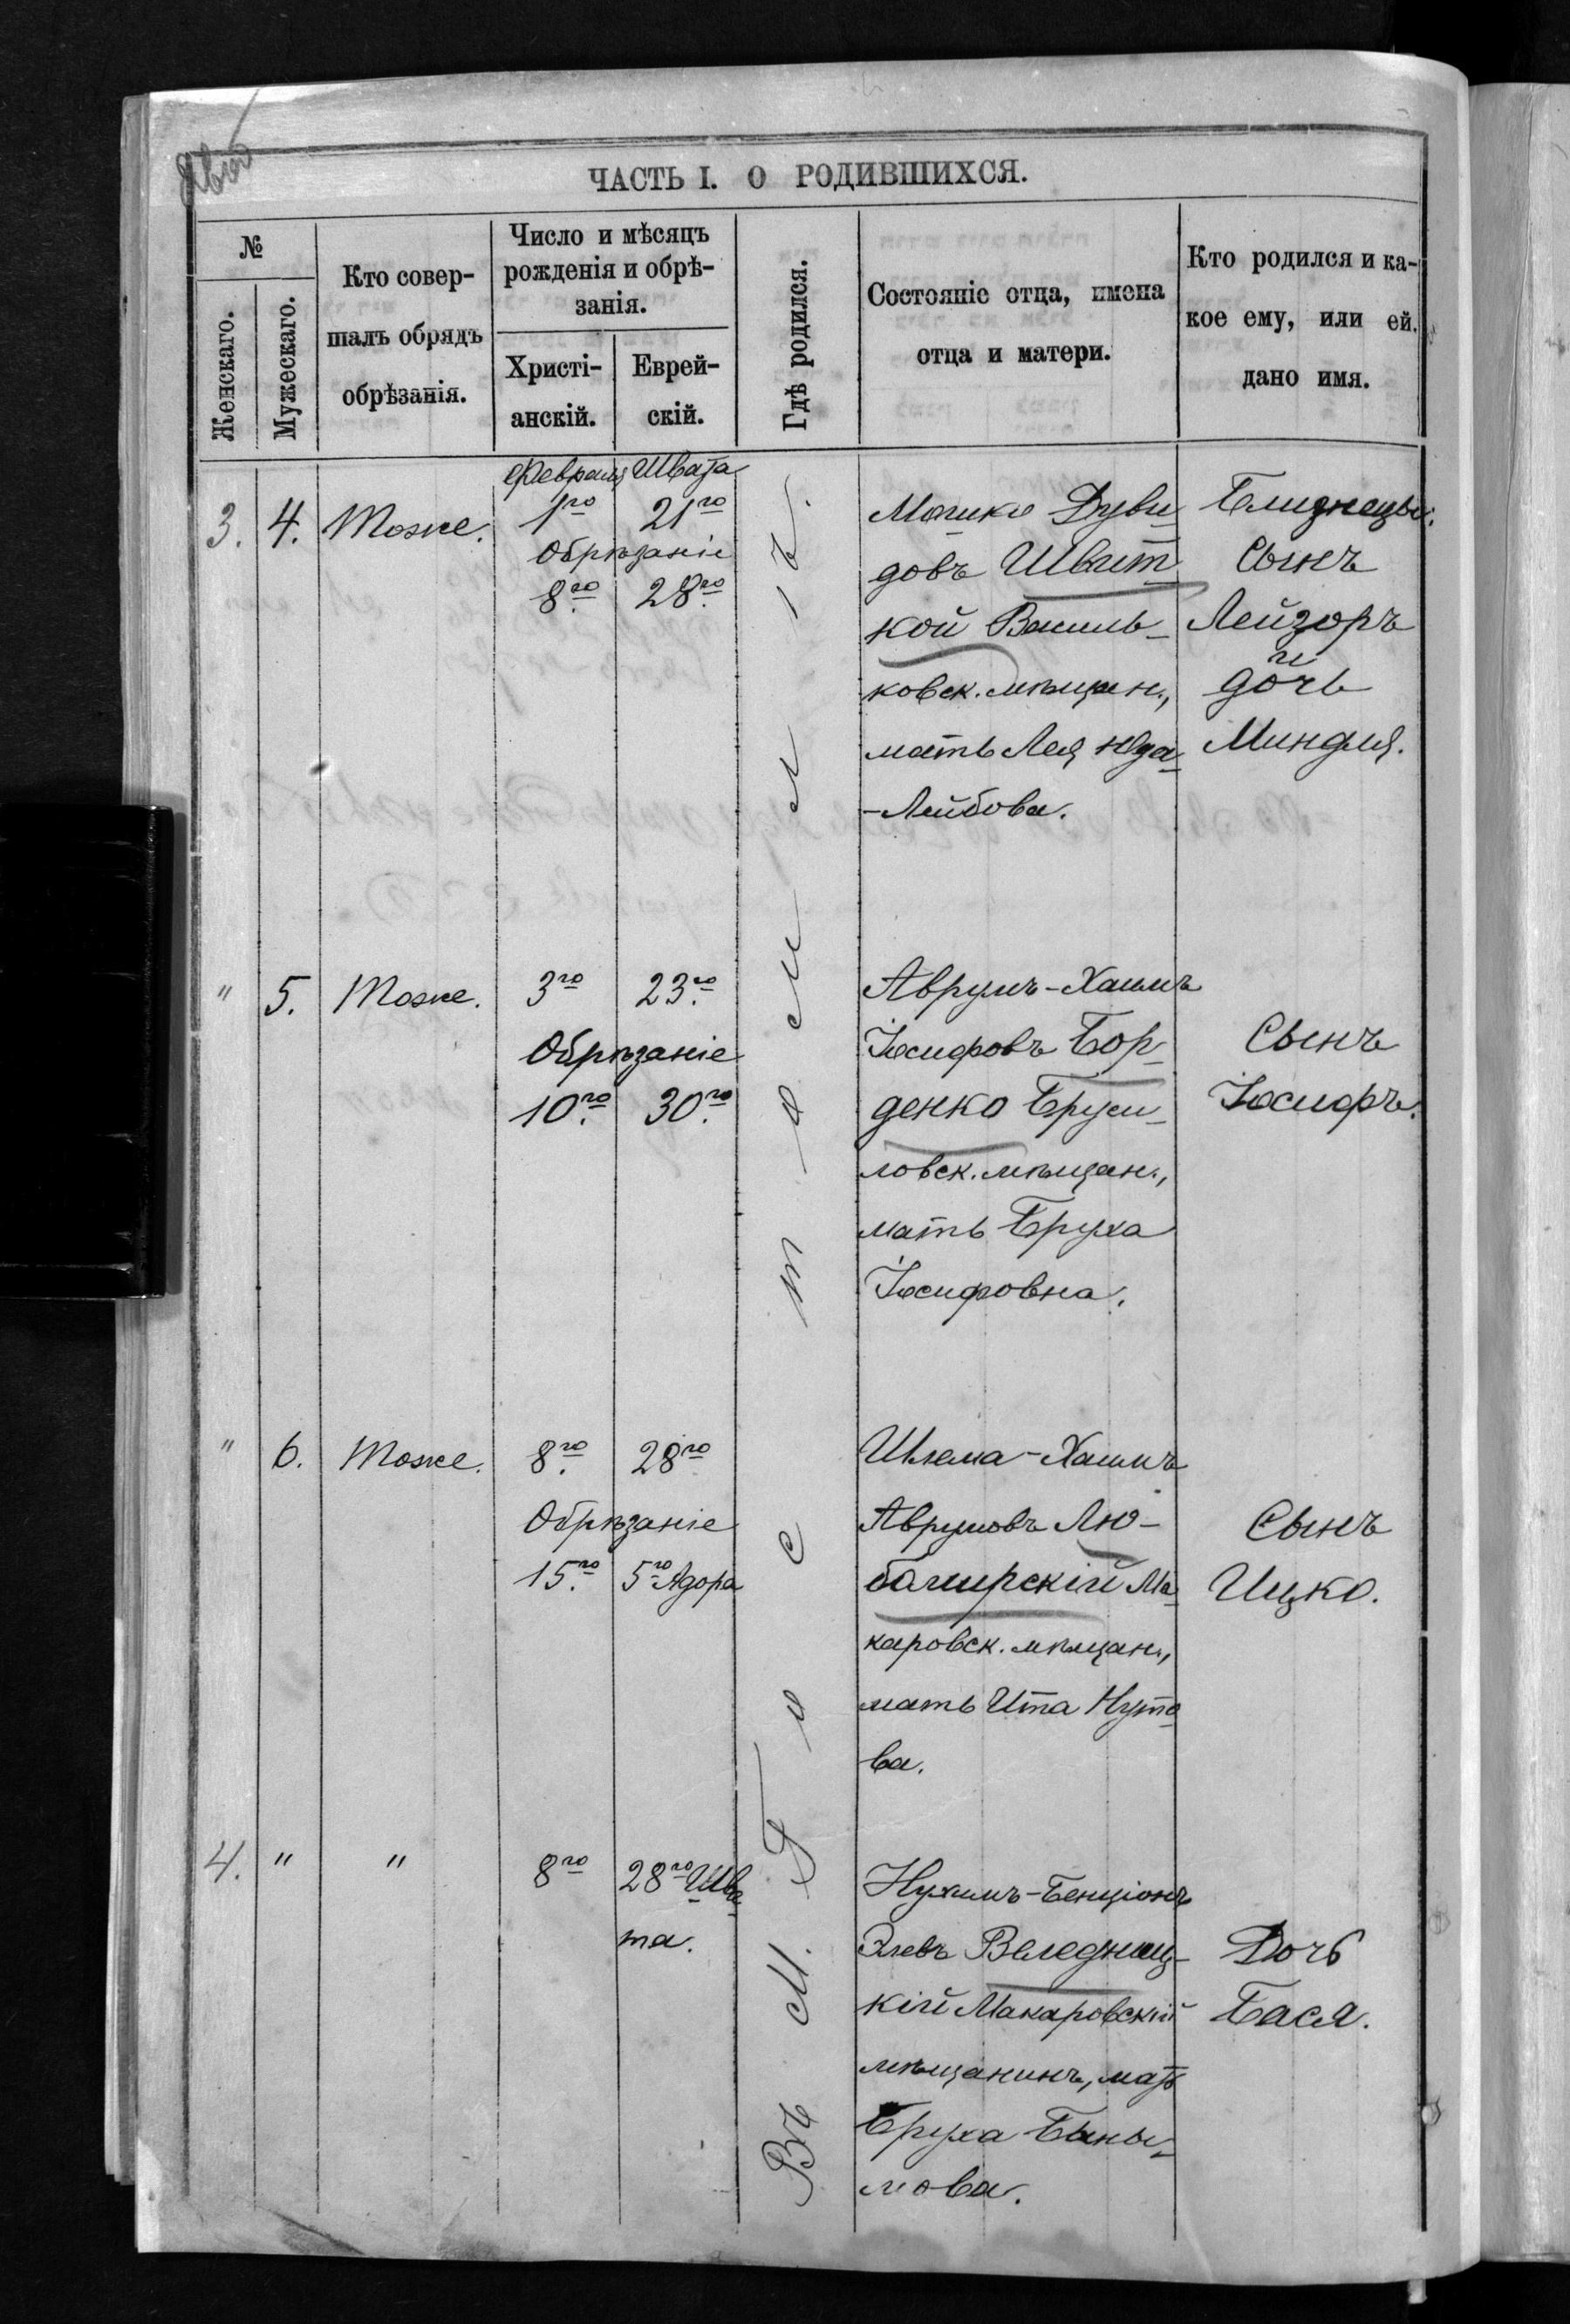 ЧАСТЬ I. О РОДИВШИХСЯ.
№
Женскаго.
Мужескаго.
Кто совер-
шалъ обрядъ
обрѣзанія.
Число и мѣсяцъ
рожденія и обрѣ-
занія.
Христі-
анскій.
Еврей-
скій.
Гдѣ родился.
Состояніе отца, имена
отца и матери.
Кто родился и ка-
кое ему, или ей.
дано имя.
Въ м.
Февраля Швата
3. 4. Тоже. 1го 21го
Обрѣзаніе
8го 28го
Мошко Дуви-
довъ Швит-
кой Василь-
ковск. мѣщан.,
мать Лея Юда-
-Лейбова.
Близнецы:
Сынъ
Лейзоръ
и
дочь
Миндля.
" 5. Тоже. 3го 23го
Обрѣзаніе
10го 30го
Аврумъ-Хаимъ
Іосифовъ Бор-
денко Бруси-
ловск. мѣщан.,
мать Бруха
Іосифовна.
Сынъ
Іосифъ.
" 6. Тоже. 8го 28го
Обрѣзаніе
15го 5го Адора
Шлема-Хаимъ
Аврумовъ Лю-
бамирскій Ма-
каровск. мѣщан.,
мать Ита Нуто-
ва.
Сынъ
Ицко.
4. " " 8го 28го Шва-
та.
Нухимъ-Бенціонъ
Элевъ Веледниц-
кій Макаровскій
мѣщанинъ, мать
Бруха Бены-
мова.
Дочь
Бася.